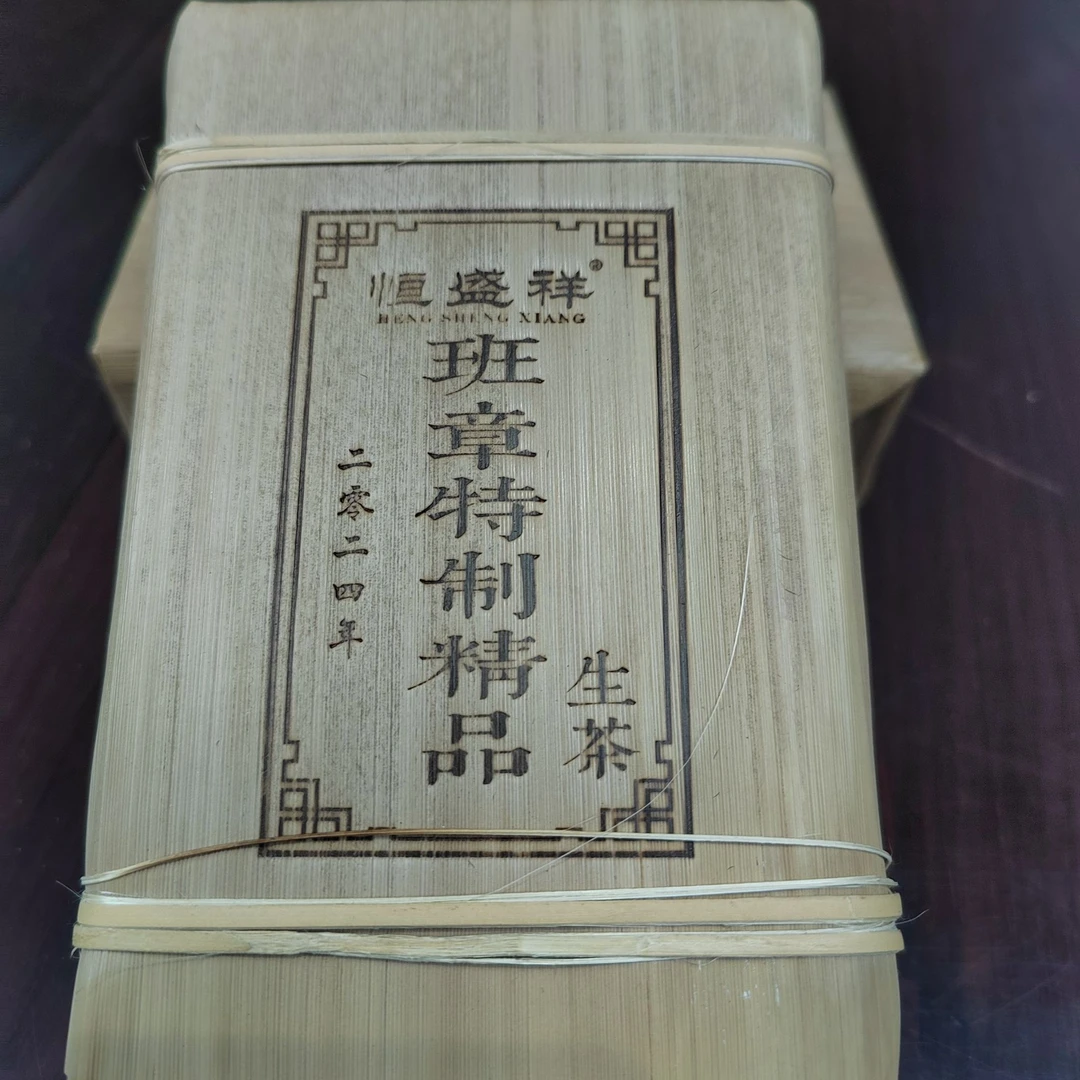 恒盛祥®
HENG SHENG XIANG
班章特制精品
生茶
二零二四年